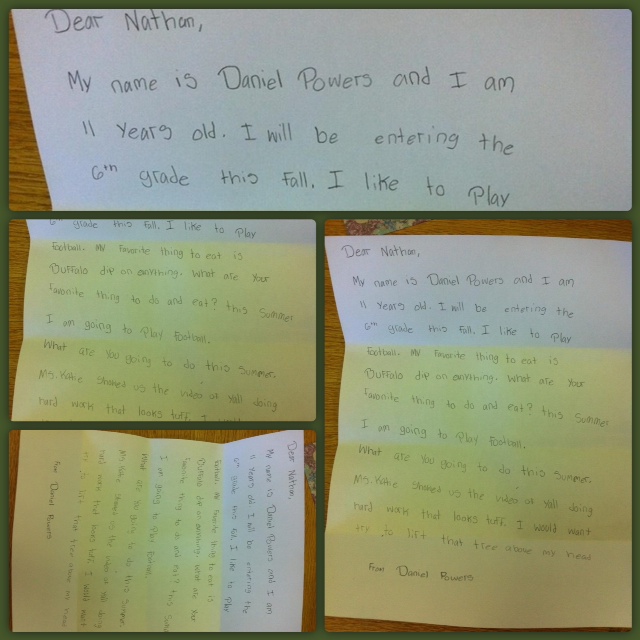 Dear Nathan,
My name is Daniel Powers and I am
11 Years old. I will be entering the
6th grade this fall. I like to Play
6th grade this fall. I like to Play
Football. My favorite thing to eat is
Buffalo dip on anything. What are Your
favorite thing to do and eat? this Summer
I am going to Play Football.
What are You going to do this Summer.
Ms. Katie Showed us the video of Yall doing
hard work that looks tuff. I would
Dear Nathan,
My name is Daniel Powers and I am
11 Years old. I will be entering the
6th grade this fall. I like to Play
Football. My favorite thing to eat is
Buffalo dip on anything. What are Your
favorite thing to do and eat? this Summer
I am going to Play Football.
What are You going to do this Summer.
Ms. Katie Showed us the video of Yall doing
hard work that looks tuff. I would want
try to lift that tree above my head
From Daniel Powers
Dear Nathan,
My name is Daniel Powers and I am
11 Years old. I will be entering the
6th grade this fall. I like to Play
Football. My favorite thing to eat is
Buffalo dip on anything. What are Your
favorite thing to do and eat? this
I am going to Play Football.
What are You going to do this Summer.
Ms. Katie Showed us the video of Yall doing
hard work that looks tuff. I would want
to lift that tree above my head
From Daniel Powers